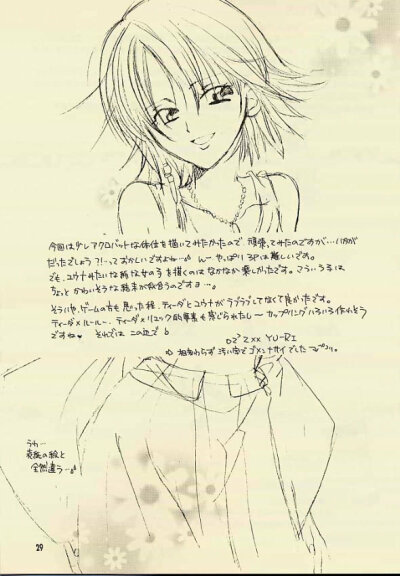 今回は少しアクロバットな体位を描いてみたかったので 頑張ってみたのですが…いかが
だったでしょう?!…っておかしいですよね… ん〜 やっぱり3Pは難しいです。
でも、ユウナみたいな娘な女の子を描くのは なかなか楽しかったです。こういう子は
ちょっと かわいそうな結末が似合うのですよ…。
そういや、ゲームの方も思った程、ティーダとユウナがラブラブしてなくて良かったです。
ティーダ×ルールー、ティーダ×リュック的要素も感じられたし〜 カップリングいろいろ作れそう
ですね それでは この辺で
YU-RI
相変わらず 汚い字で ゴメンナサイでした
うわ…
表紙の絵と
全然違う…
29